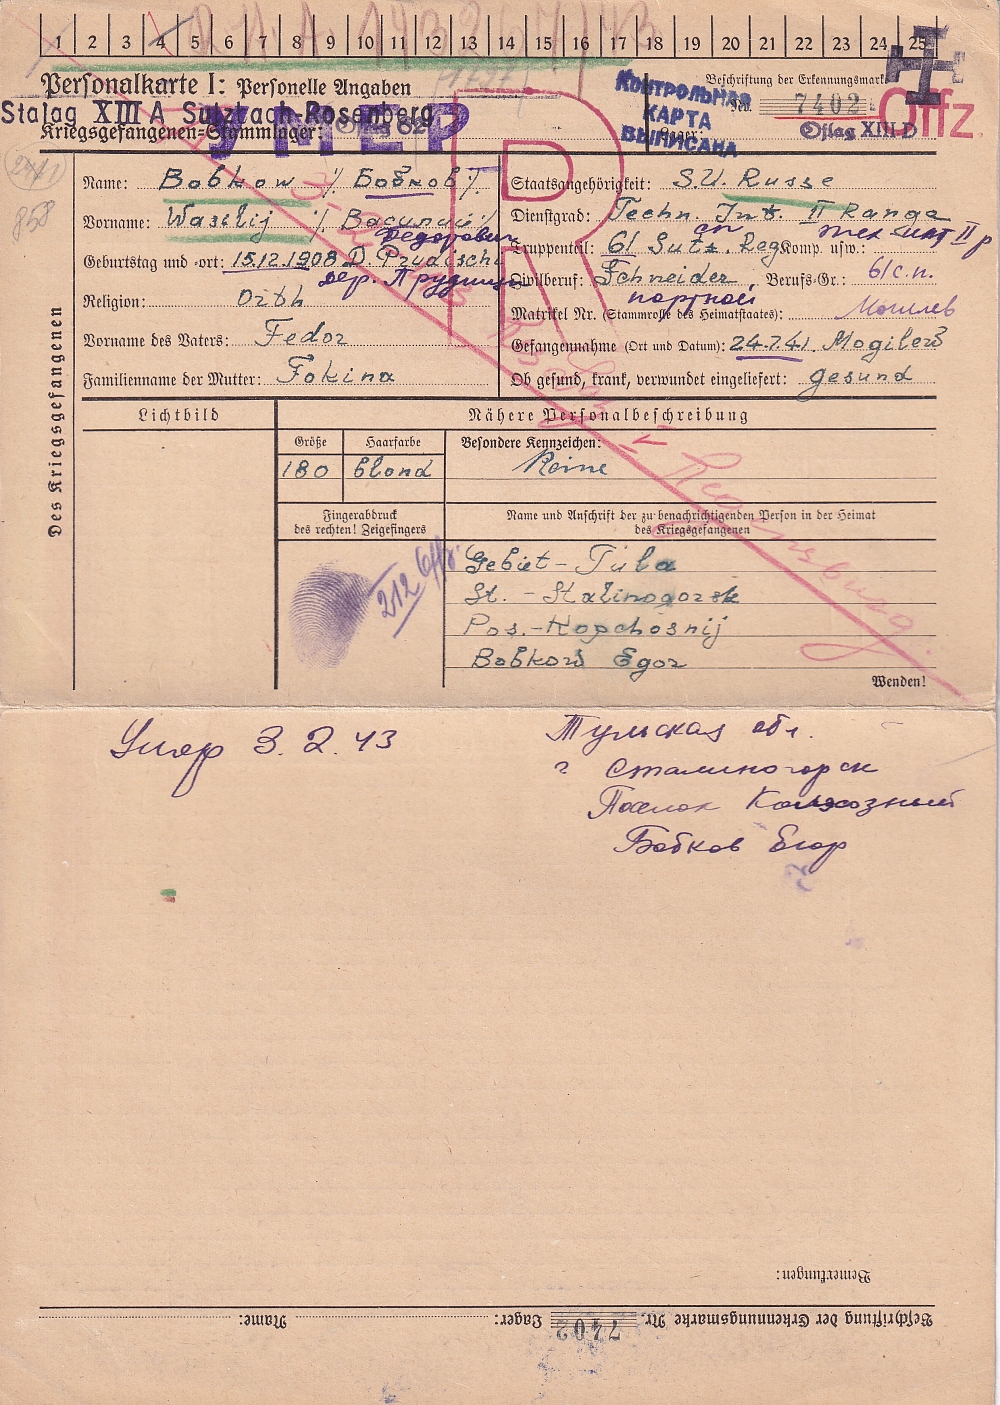 1 2 3 4 5 6 7 8 9 10 11 12 13 14 15 16 17 18 19 20 21 22 23 24 25
Personalkarte I: Personelle Angaben
Beschriftung der Erkennungsmarke
Stalag XIII A Sulzbach-Rosenberg
Nr. 7402
Offz.
Kriegsgefangenen-Stammlager: Oflag 62
Lager: Oflag XIII D
УМЕР
КОНТРОЛЬНАЯ
КАРТА
ВЫПИСАНА
R
858
Des Kriegsgefangenen
Name: Bobkow /. Бобков /.
Vorname: Wasslij /. Василий /.
Федорович
Geburtstag und -ort: 15.12.1908 D. Prudischi
дер. Прудищи
Religion: Orth
Vorname des Vaters: Fedor
Familienname der Mutter: Fokina
Staatsangehörigkeit: S.U. Russe
Dienstgrad: Techn. Int. II Range
сп тех инт II р
Truppenteil: 61 Sutz. Reg. Komp. usw.:
61 с.п.
Zivilberuf: Schneider, Berufs-Gr.:
портной
Matrikel Nr. (Stammrolle des Heimatstaates): Могилев
Gefangennahme (Ort und Datum): 24.7.41. Mogilew
Ob gesund, krank, verwundet eingeliefert: gesund
Lichtbild
Nähere Personalbeschreibung
Größe Haarfarbe Besondere Kennzeichen:
180 blond Keine
Fingerabdruck
des rechten! Zeigefingers
Name und Anschrift der zu benachrichtigenden Person in der Heimat
des Kriegsgefangenen
212 Offz.
Gebiet - Tula
St. - Stalinogorsk
Pos. - Kopchosnij
Bobkow Egor
Regensburg
Wenden!
Умер 3.2.43
Тульская обл.
г Сталиногорск
Поселок Колхозный
Бобков Егор
Bemerkungen:
Beschriftung der Erkennungsmarke Nr. 7402 Lager: Name: